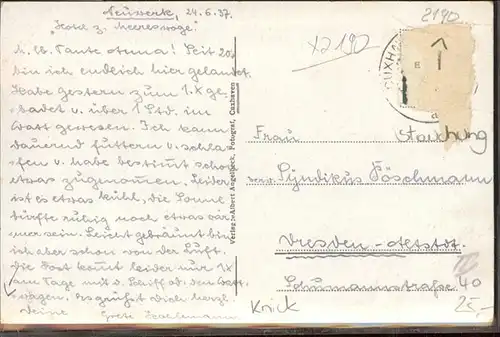 Neuwerk, 24.6.37.
"Hotel z. Meereswoge."
M. lb. Tante Otma! Seit 20.
bin ich endlich hier gelandet.
Habe gestern zum 1.X ge-
badet u. über 1 Std. im
Watt gewesen. Ich kann
dauernd futtern u. schla-
fen u. habe bestimmt schon
etwas zugenommen. Leider
ist es etwas kühl, die Sonne
dürfte ruhig noch etwas wär-
mer sein. Leicht gebräunt bin
ich aber schon von der Luft.
die Post kommt leider nur 1X
am Tage mit d. Schiff od. den
wagen. Es grüßt dich herzl.
Deine Grete
Verlag: Albert Augelbeck, Fotograf, Cuxhaven
2190
X2190
CUXH
Frau
Syndikus Pöschmann
Dresden-Altstdt.
Schumannstraße 40
25,-
Knick